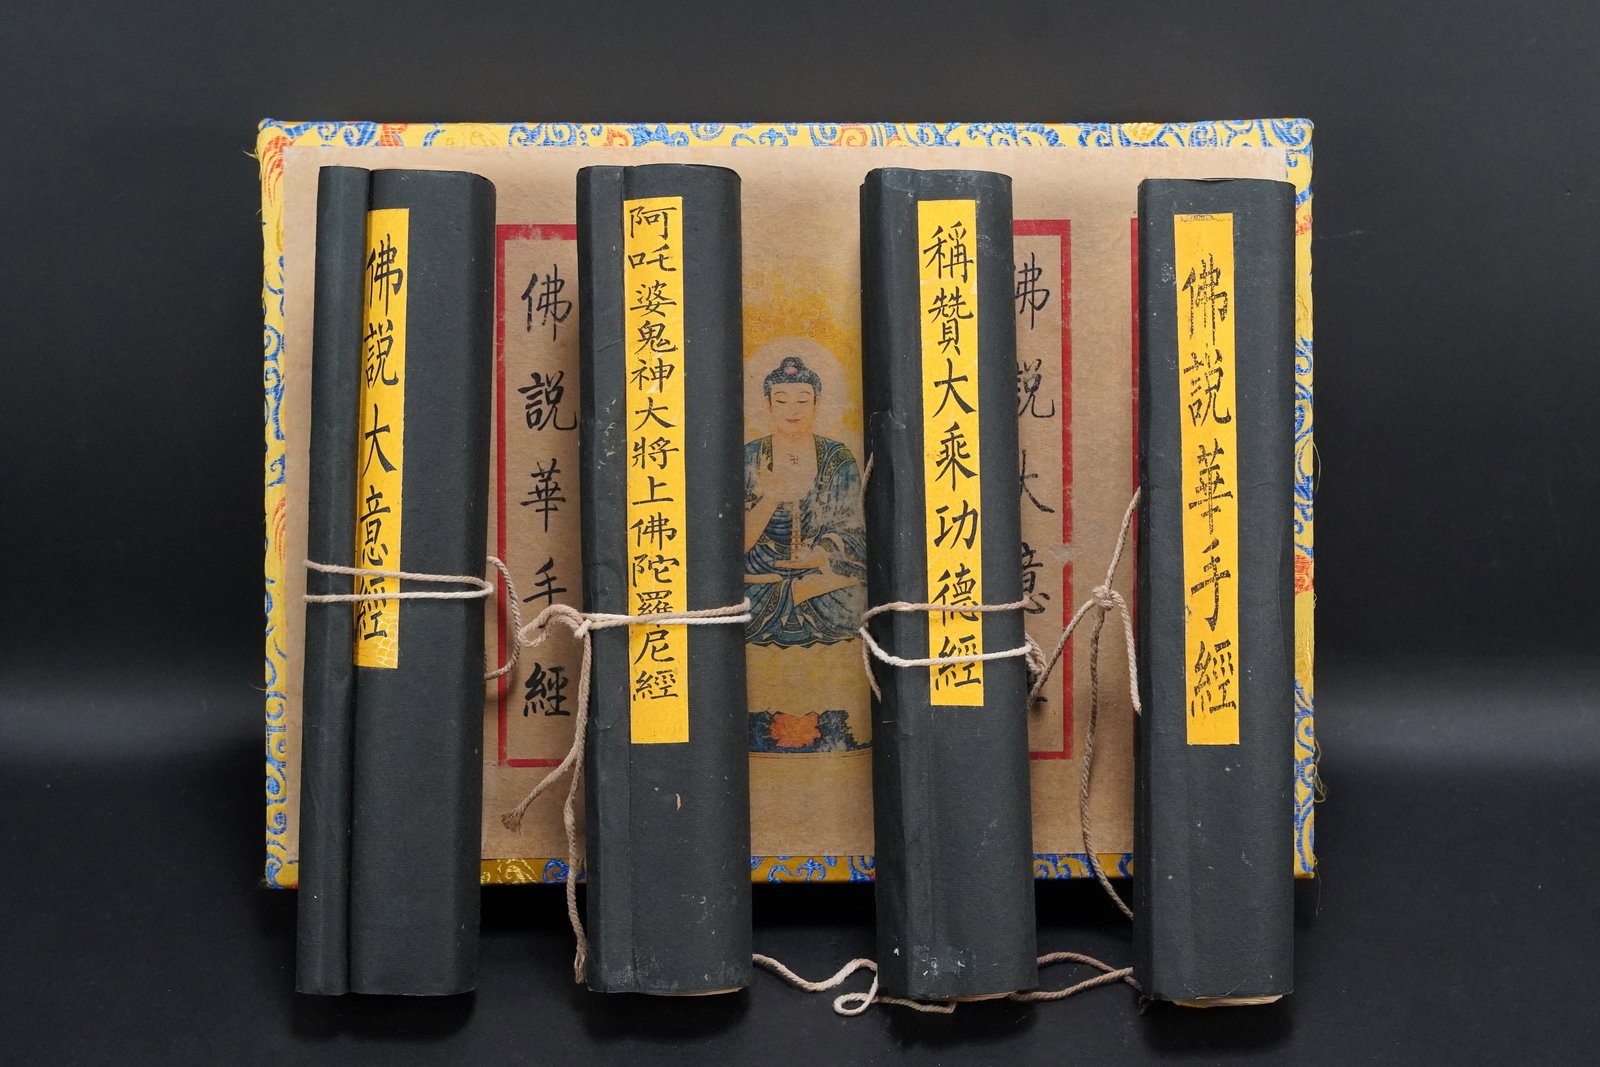 佛說大意經
佛說華手經
阿吒婆鬼神大將上佛陀羅尼經
稱贊大乘功德經
佛說大意
佛說華手經